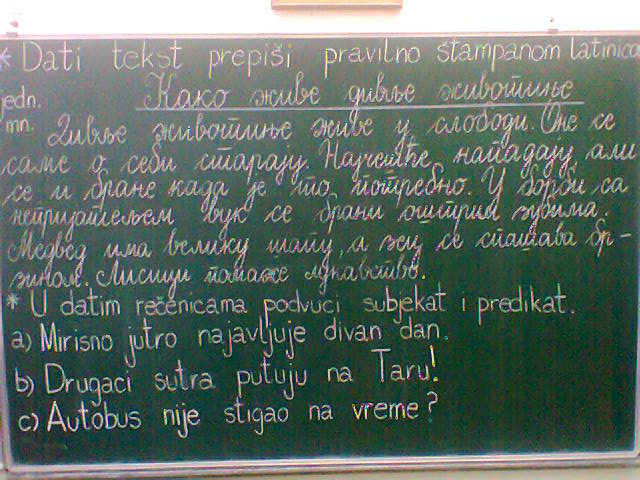 * Dati tekst prepiši pravilno štampanom latinicom
jedn. Како живе дивље животиње
mn. Дивље животиње живе у слободи. Оне се
саме о себи старају. Најчешће нападају али
се и бране када је то потребно. У борби са
непријатељем вук се брани оштрим зубима.
Медвед има велику шапу, а зец се спашава бр-
зином. Лисици помаже лукавство.
* U datim rečenicama podvuci subjekat i predikat.
a) Mirisno jutro najavljuje divan dan.
b) Drugaci sutra putuju na Taru!
c) Autobus nije stigao na vreme?